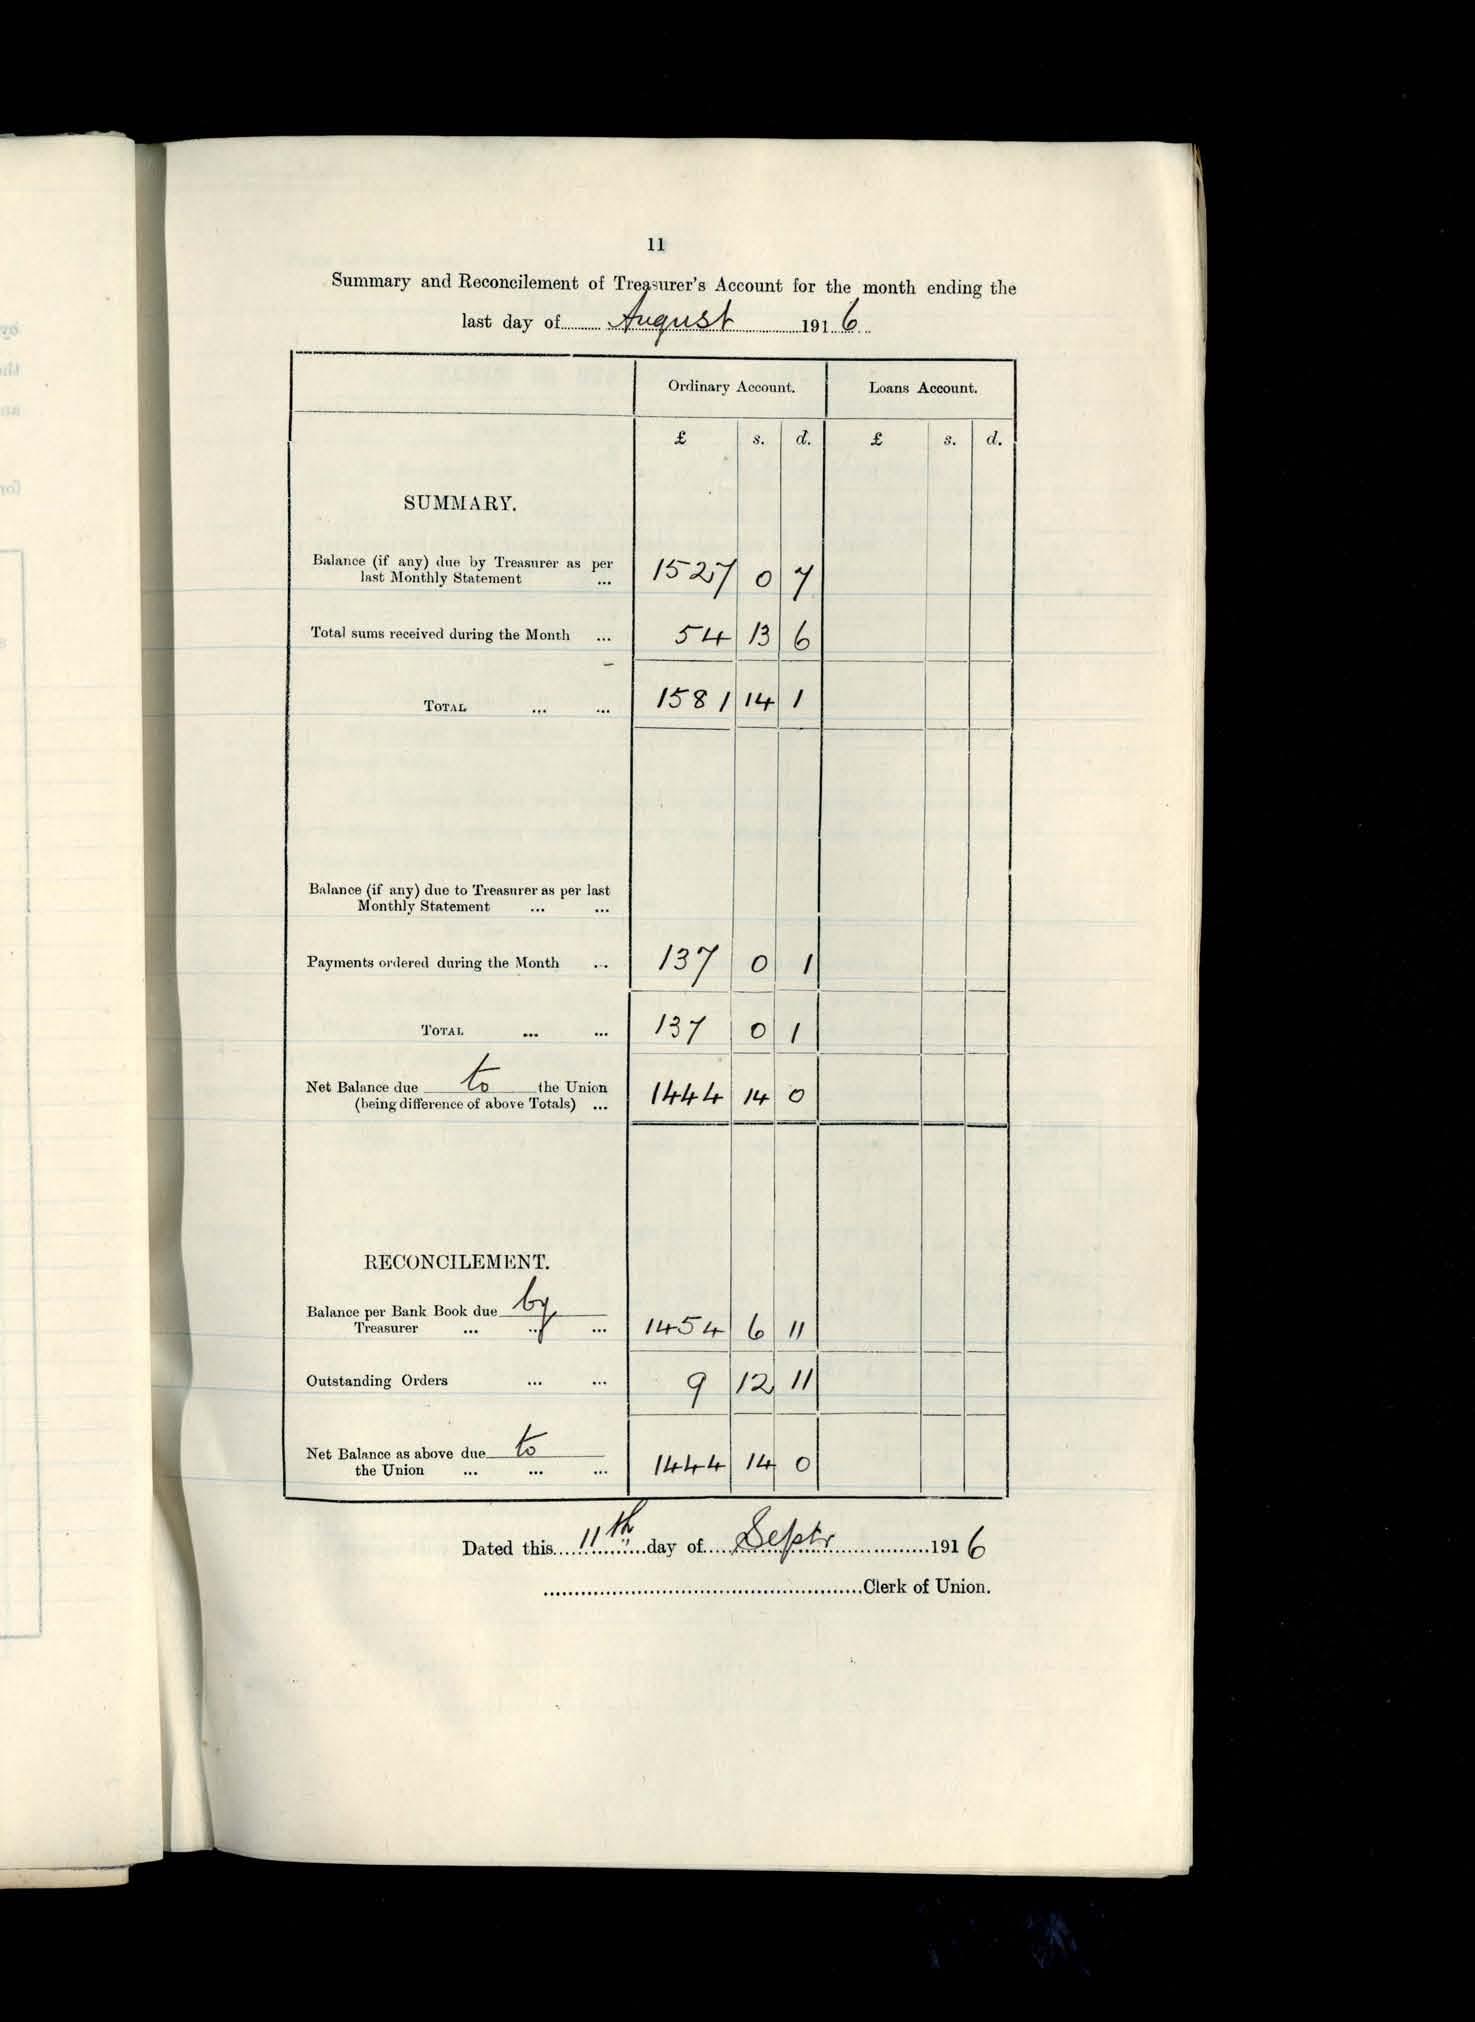 11
Summary and Reconcilement of Treasurer's Account for the month ending the
last day of August 1916
Ordinary Account. Loans Account.
£ s. d. £ s. d.
SUMMARY.
Balance (if any) due by Treasurer as per
last Monthly Statement ... 1527 0 7
Total sums received during the Month ... 54 13 6
TOTAL ... ... 1581 14 1
Balance (if any) due to Treasurer as per last
Monthly Statement ... ...
Payments ordered during the Month ... 137 0 1
TOTAL ... ... 137 0 1
Net Balance due to the Union
(being difference of above Totals) ... 1444 14 0
RECONCILEMENT.
Balance per Bank Book due by
Treasurer ... ... ... 1454 6 11
Outstanding Orders ... ... 9 12 11
Net Balance as above due to
the Union ... ... ... 1444 14 0
Dated this 11th day of Septr 1916
Clerk of Union.